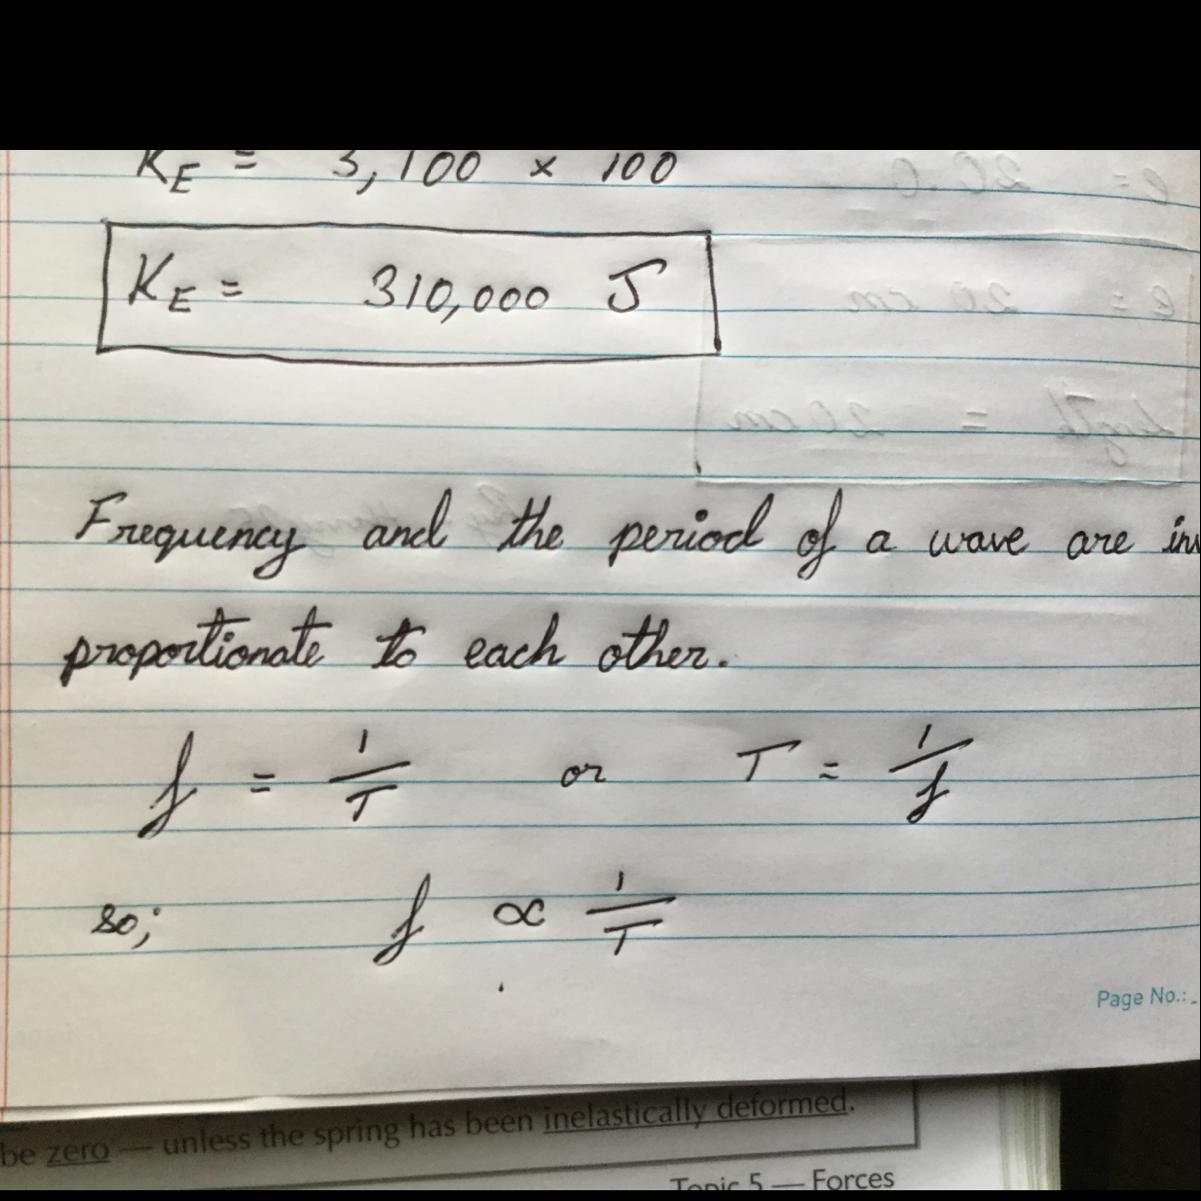 KE = 3,100 × 100
KE = 310,000 J
Frequency and the period of a wave are
proportionate to each other.
f = 1/T or T = 1/f
so; f ∝ 1/T
Page No.:
be zero — unless the spring has been inelastically deformed.
Topic 5 — Forces